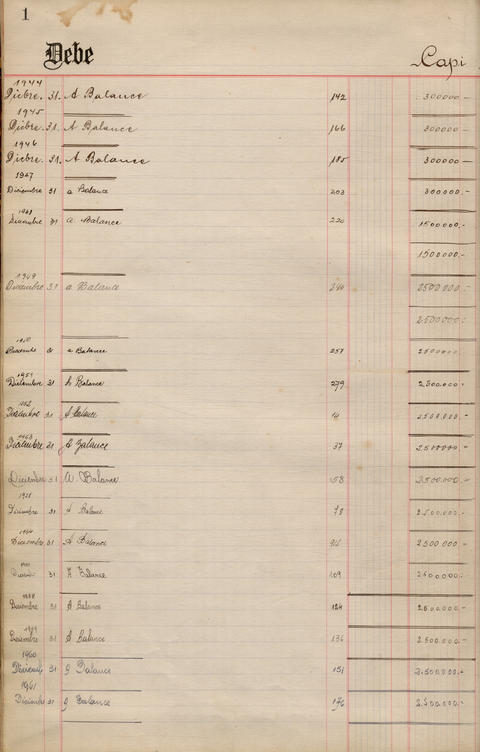 1
Debe Capi
1944
Dicbre. 31. A Balance 142 300000.-
1945
Dicbre. 31. A Balance 166 300000.-
1946
Dicbre. 31. A Balance 185 300000-
1947
Diciembre 31 a Balance 203 300000.-
1948
Diciembre 31 a Balance 220 1500000.-
1500000.-
1949
Diciembre 31 a Balance 240 2500000.-
2500000.-
1950
31 a Balance 257 2500000
1951
Diciembre 31 A Balance 279 2500000.-
1952
Diciembre 31 A Balance 14 2500000.-
1953
Diciembre 31 A Balance 37 2500000-
Diciembre 31 A Balance 58 2500000.-
Diciembre 31 A Balance 78 2500000.-
Diciembre 31 A Balance 2500000.-
31 A Balance 109 2500000-
1958
Diciembre 31 A Balance 124 2500000.-
1959
Diciembre 31 A Balance 136 2500000.-
1960
Diciemb. 31 a Balance 151 2.500.000.-
1961
Diciembre 31 a Balance 176 2.500.000.-